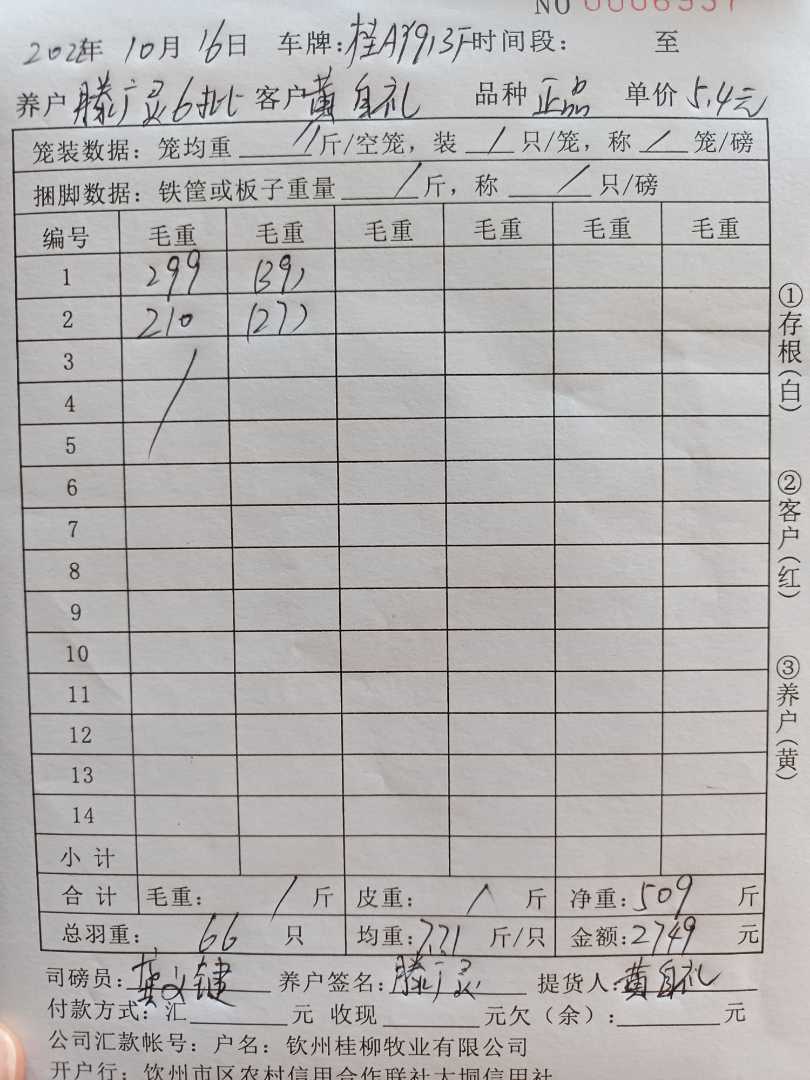 NO 0006957
10月16日 车牌: 时间段: 至
养户 滕广灵6批 客户 黄自礼 品种 正品 单价 5.4元
笼装数据: 笼均重 / 斤/空笼, 装 / 只/笼, 称 / 笼/磅
捆脚数据: 铁筐或板子重量 / 斤, 称 / 只/磅
编号 毛重 毛重 毛重 毛重 毛重 毛重
1 299 (39)
2 210 (27)
3
4
5
6
7
8
9
10
11
12
13
14
小 计
合 计 毛重: / 斤 皮重: / 斤 净重: 509 斤
总羽重: 66 只 均重: 7.71 斤/只 金额: 2749 元
司磅员: 养户签名: 滕广灵 提货人: 黄自礼
付款方式: 汇 元 收现 元欠(余): 元
公司汇款帐号: 户名: 钦州桂柳牧业有限公司
开户行: 钦州市区农村信用合作联社大垌信用社
①存根(白)
②客户(红)
③养户(黄)